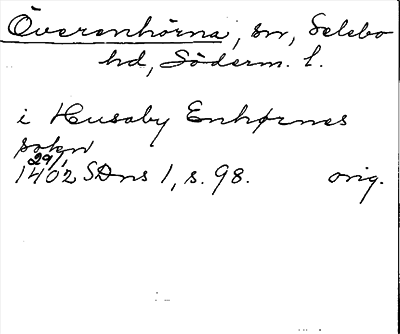 Överenhörna, sn, Selebo
hd, Söderm. l.
i Husaby Enhørnes
sokn
29/1
1402 SDns 1, s. 98. orig.